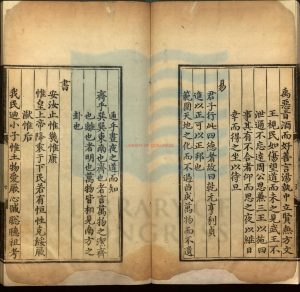 禹惡旨酒而好善言湯執中立賢無方文
王視民如傷望道而未之見武王不
泄邇不忘遠周公思兼三王以施四
事其有不合者仰而思之夜以繼日
幸而得之坐以待旦
易
君子行此四德者故曰乾元亨利貞
進以正可以正邦也
範圍天地之化而不過曲成萬物而不遺
通乎晝夜之道而知
齊乎巽巽東南也齊也者言萬物之潔齊
也離也者明也萬物皆相見南方之
卦也
書
安汝止惟幾惟康
惟皇上帝降衷于下民若有恒性克綏厥
猷惟后
我民迪小子惟土物愛厥心臧聰聽祖考
LIBRARY OF CONGRESS